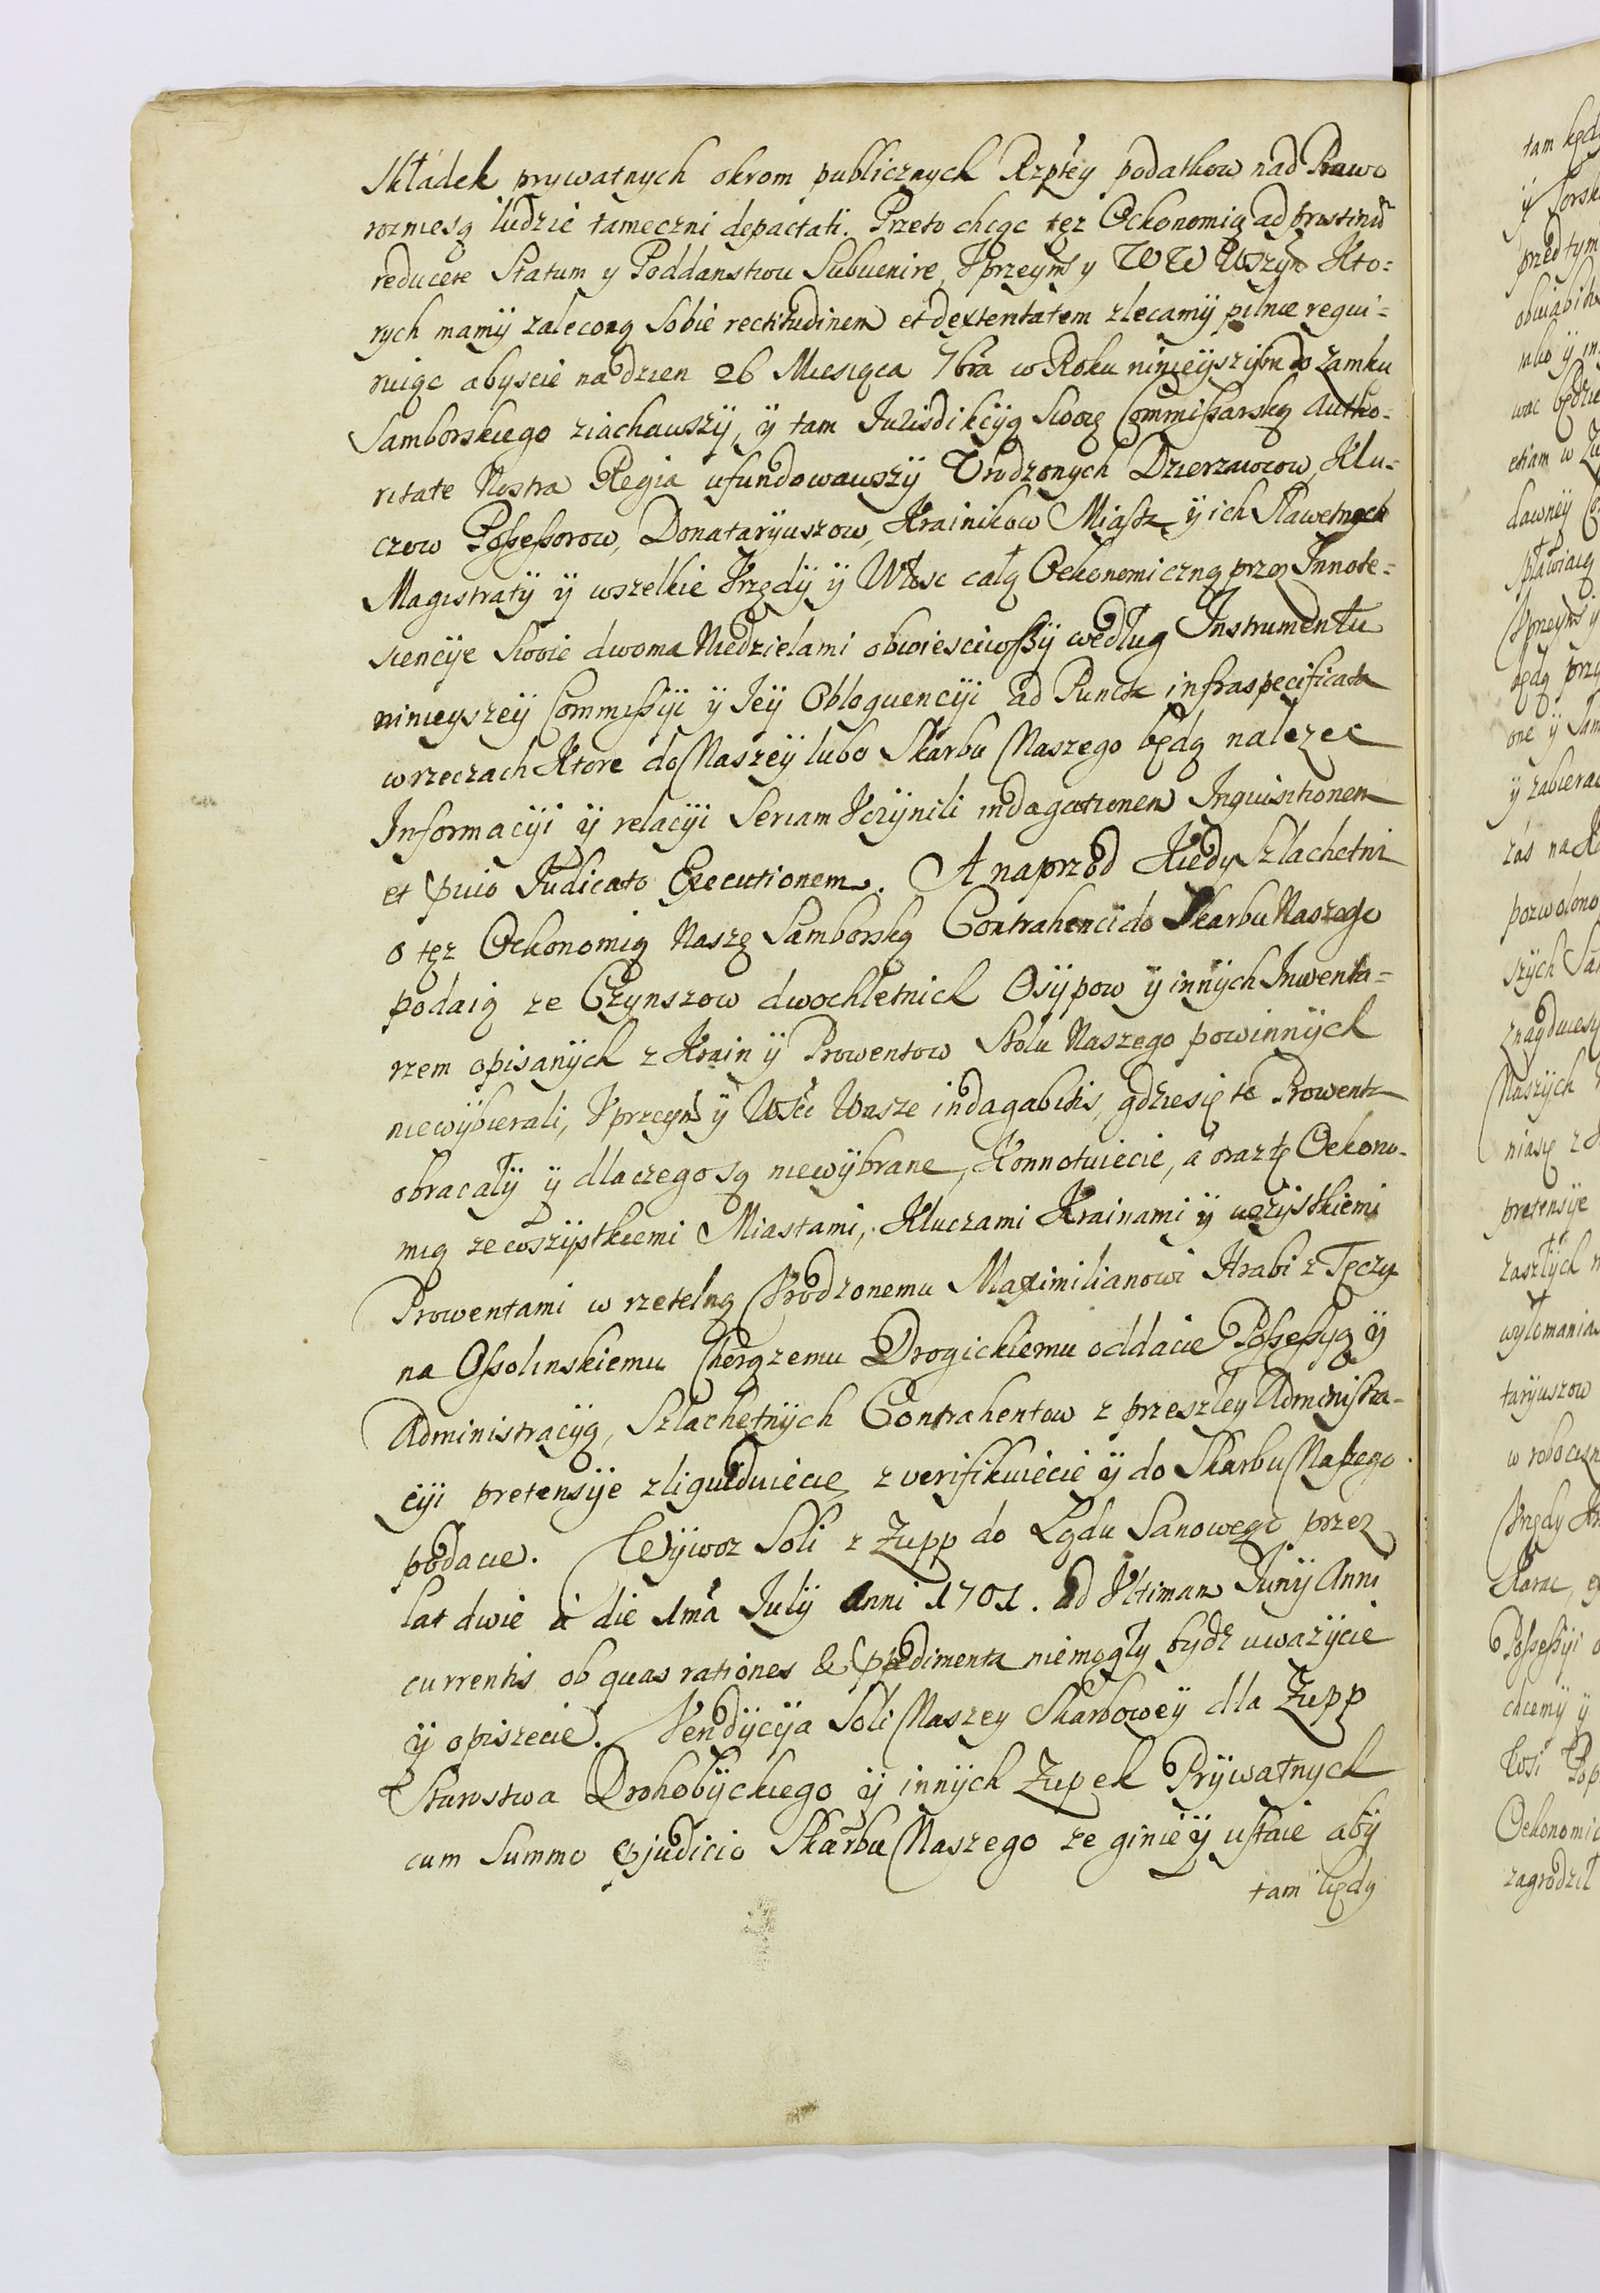 Składek prywatnych okrom publicznych Rzptey podatkow nad Prawo
rozniesą ludzie tameczni depactati. Przeto chcąc tęz Oekonomią ad pristinũ
reducere Statum y Poddanstwu Subvenire, Vprzeym y WW Wszyn Kto=
rych mamÿ zaleconą Sobie rectitudinem et dexteritatem zlecamÿ pilnie requi=
ruiąc abyscie na dzien 26 Miesiąca 7bra w Roku ninieÿszÿm do Zamku
Samborskiego ziachawszÿ, ÿ tam Jurisdikcÿą Swoią Commissarską Autho=
ritate Nostra Regia ufundowawszÿ Vrodzonych Dzierzawcow, Klu=
czow Possessorow, Donatarÿuszow, Krainikow Miast ÿ ich Sławetnych
Magistratÿ ÿ wszelkie Vrzędÿ ÿ Włosc całą Oekonomiczną przez Innote=
scencÿe Swoie dwoma Niedzielami obwiesciwszÿ według Instrumentu
ninieyszeÿ Commissÿi ÿ Ieÿ Obloquencÿi ad Puncta infraspecificata
w rzeczach Ktore do Naszeÿ lubo Skarbu Naszego będą nalezec
Informacÿi ÿ relacÿi Seriam Vczÿnili indagationem Inquisitionem
et pvio Judicato Executionem. A naprzod Kiedy Szlachetni
o tęz Oekonomią Naszę Samborską Contrahenci do Skarbu Naszego
podaią ze Czynszow dwochletnich Osÿpow ÿ innÿch Inwenta=
rzem opisanÿch z Krain ÿ Prowentow Stołu Naszego powinnÿch
niewÿbierali, Vprzeym ÿ Wści Wasze indagabitis, gdzie się te Prowenta
obracałÿ ÿ dlaczego są niewÿbrane, Konnotuiecie, a oraz tę Oekono=
mią ze wszÿstkiemi Miastami, Kluczami Krainami ÿ wszÿstkiemi
Prowentami w rzetelną Vrodzonemu Maximilianowi Hrabi z Tęczy=
na Ossolinskiemu Chorązemu Drogickiemu oddacie Possessyą ÿ
Administracÿą, Szlachetnÿch Contrahentow z przeszłey Administra=
cÿi pretensÿe zliquiduiecie zverifikuiecie ÿ do Skarbu Naszego
podacie. Wÿwoz Soli z Zupp do Lądu Sanowego przez
lat dwie à die 1ma Julÿ Anni 1701. ad Vltimam Junÿ Anni
currentis ob quas rationes & ppedimenta niemogły bydz uwazÿcie
ÿ opiszecie. Vendÿcÿa Soli Naszey Skarbowëy dla Zupp
Starostwa Drohobÿckiego ÿ innÿch Zupek Prÿwatnych
cum Summo pjudicio Skarbu Naszego ze ginie ÿ ustaie abÿ
tam kędy